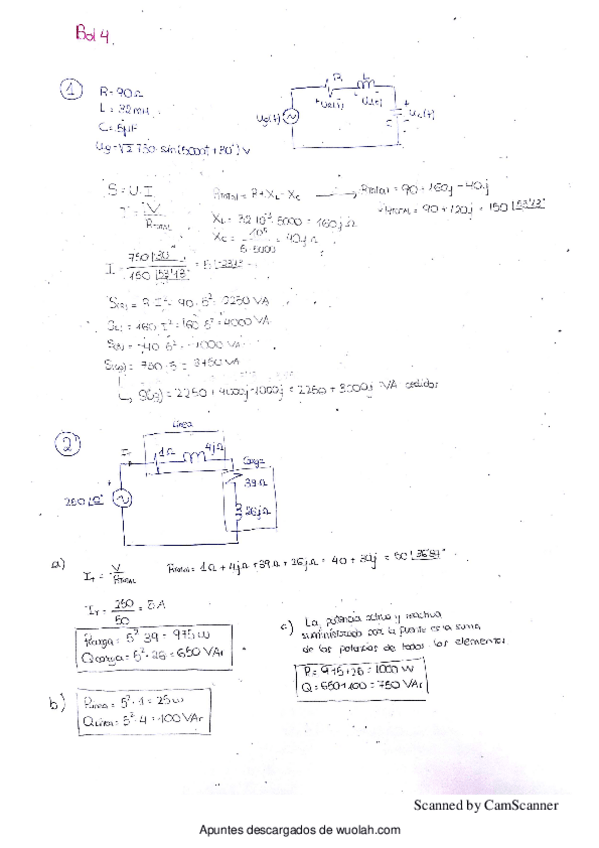 Bol 4.
1
R = 90Ω
L = 32mH
C = 5μF
Ug = √2 750 · sin(5000t + 30°) V
R L
Ug(t) UR(t) UL(t) UC(t)
C
S = U·I
I = V / RTOTAL
RTOTAL = R + XL - XC → RTOTAL = 90 + 160j - 40j
RTOTAL = 90 + 120j = 150 |53'13°
XL = 32·10⁻³·5000 = 160j Ω
XC = 10⁶ / 5·5000 = 40j Ω
I = 750 |30° / 150 |53'13° = 5 |-23'13°
S(R) = R·I² = 90·5² = 2250 VA
S(L) = 160 I² = 160·5² = 4000 VA
= -40·5² = -1000 VA
S(g) = 750·5 = 3750 VA
S(g) = 2250 + 4000j - 1000j = 2250 + 3000j VA cedidos
2
Línea
1Ω 4jΩ
Carga
39Ω
250 |0°
26jΩ
a) IT = V / RTOTAL RTOTAL = 1Ω + 4jΩ + 39Ω + 26jΩ = 40 + 30j = 50 |36'87°
IT = 250 / 50 = 5A
Pcarga = 5²·39 = 975 W
Qcarga = 5²·26 = 650 VAr
b) Plínea = 5²·1 = 25 W
Qlínea = 5²·4 = 100 VAr
c) La potencia activa y reactiva
suministrada por la fuente es la suma
de las potencias de todos los elementos
P = 975 + 25 = 1000 W
Q = 650 + 100 = 750 VAr
Scanned by CamScanner
Apuntes descargados de wuolah.com